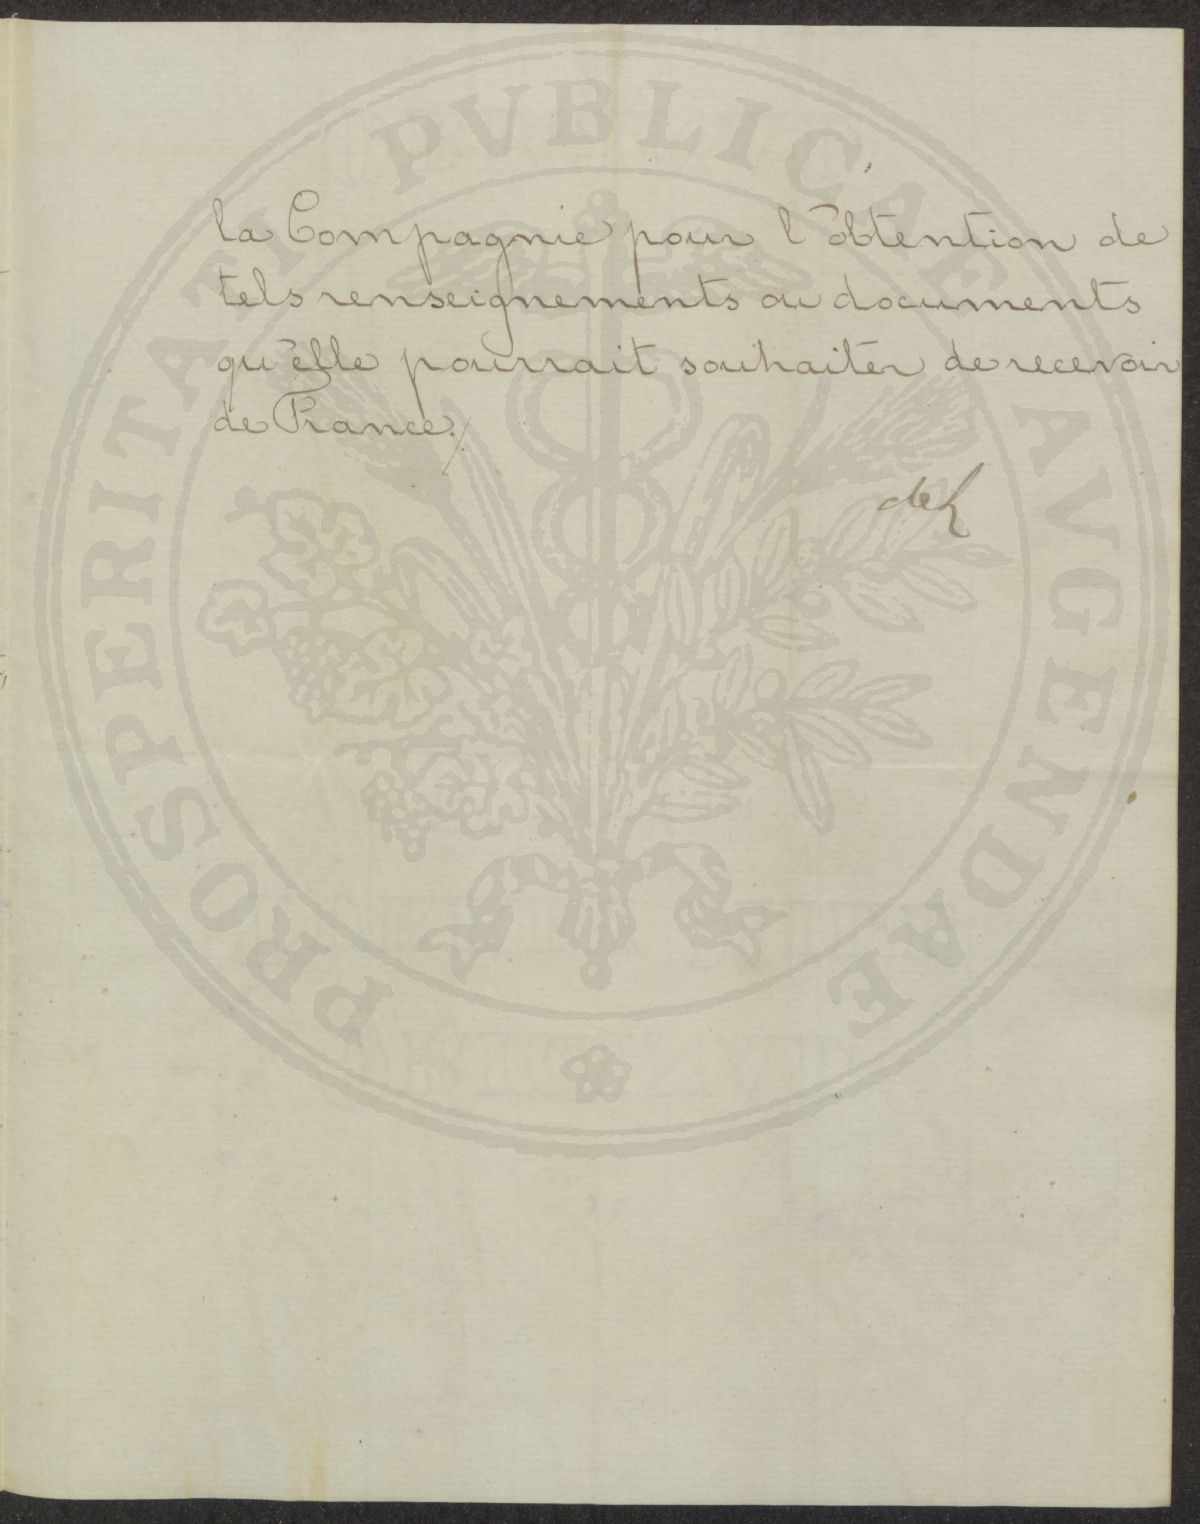 la Compagnie pour l'obtention de
tels renseignements ou documents
qu'elle pourrait souhaiter de recevoir
de France./.
PROSPERITATI PVBLICAE AVGENDAE